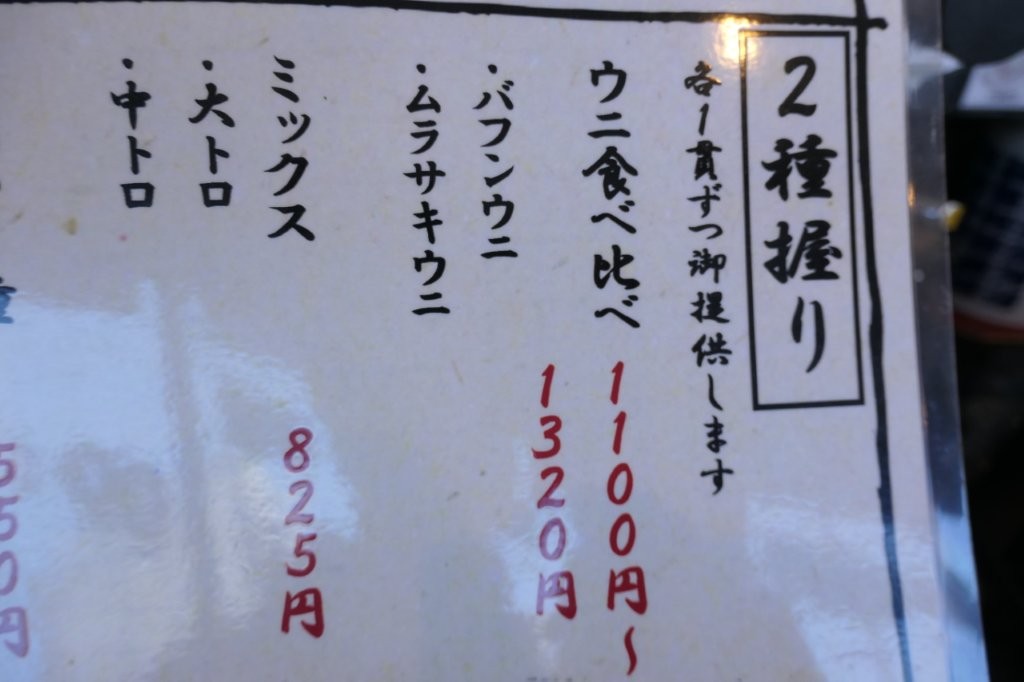 2種握り
各1貫ずつ御提供します
ウニ食べ比べ 1100円~
1320円
・バフンウニ
・ムラサキウニ
ミックス 825円
・大トロ
・中トロ
550円